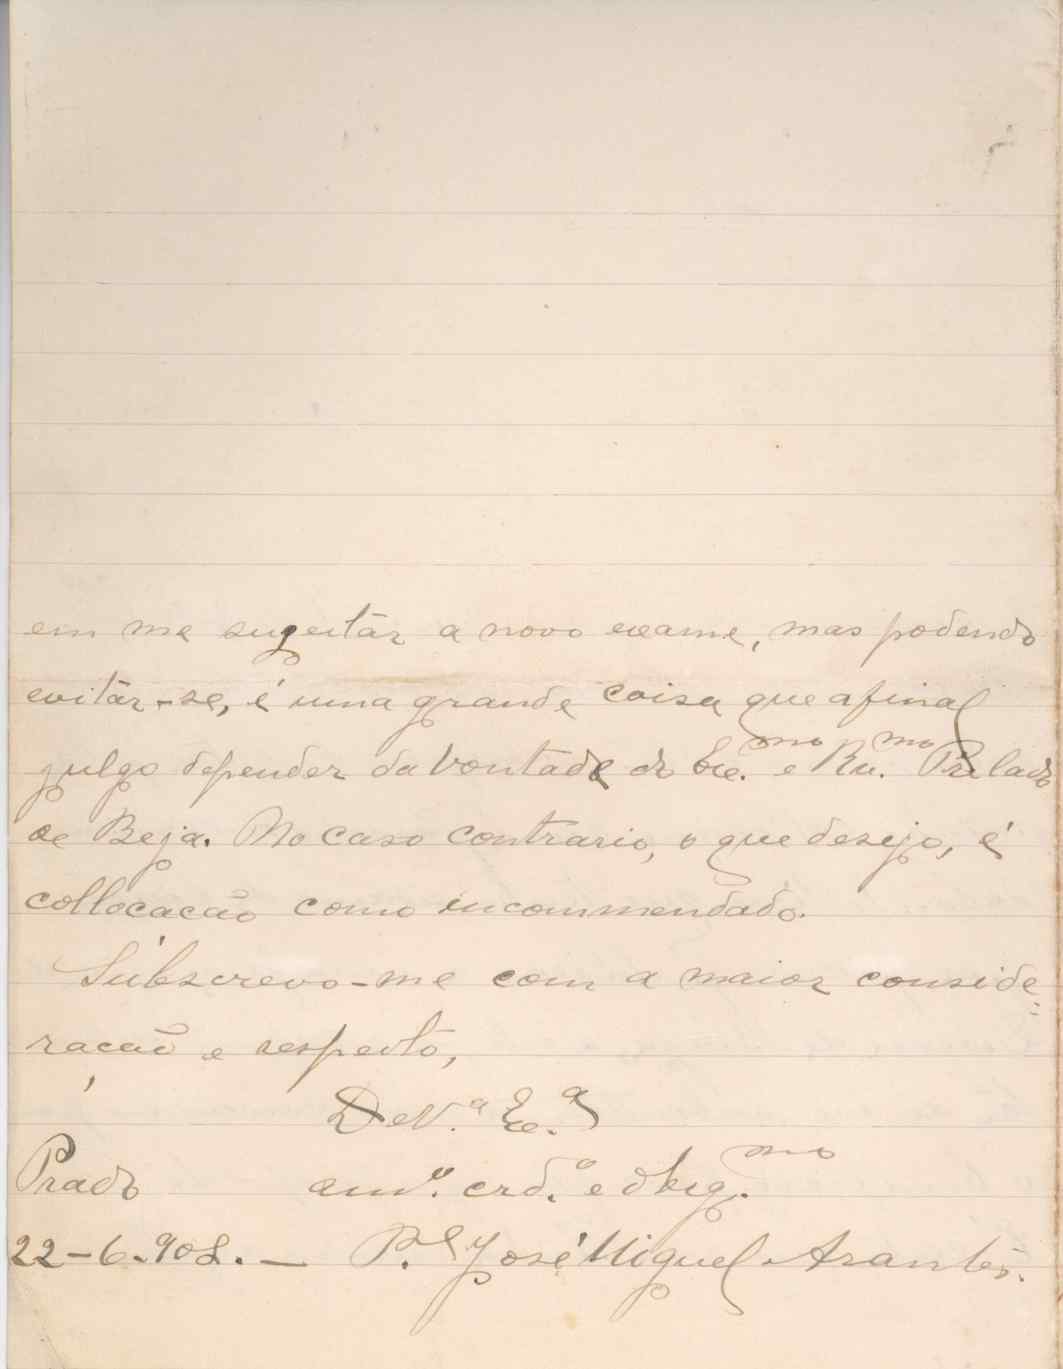 em me sugeitar a novo exame, mas podendo
evitar-se, é uma grande coisa que afinal
julgo depender da vontade do Exc.mo e Rv.mo Prelado
de Beja. No caso contrario, o que desejo, é
collocacão como incommendado.
Subscrevo-me com a maior conside=
ração e respeito,
De V.a Exc.a
Prado am.o crd.o e obrig.mo
22-6-908. — P.e José Miguel Arantes.